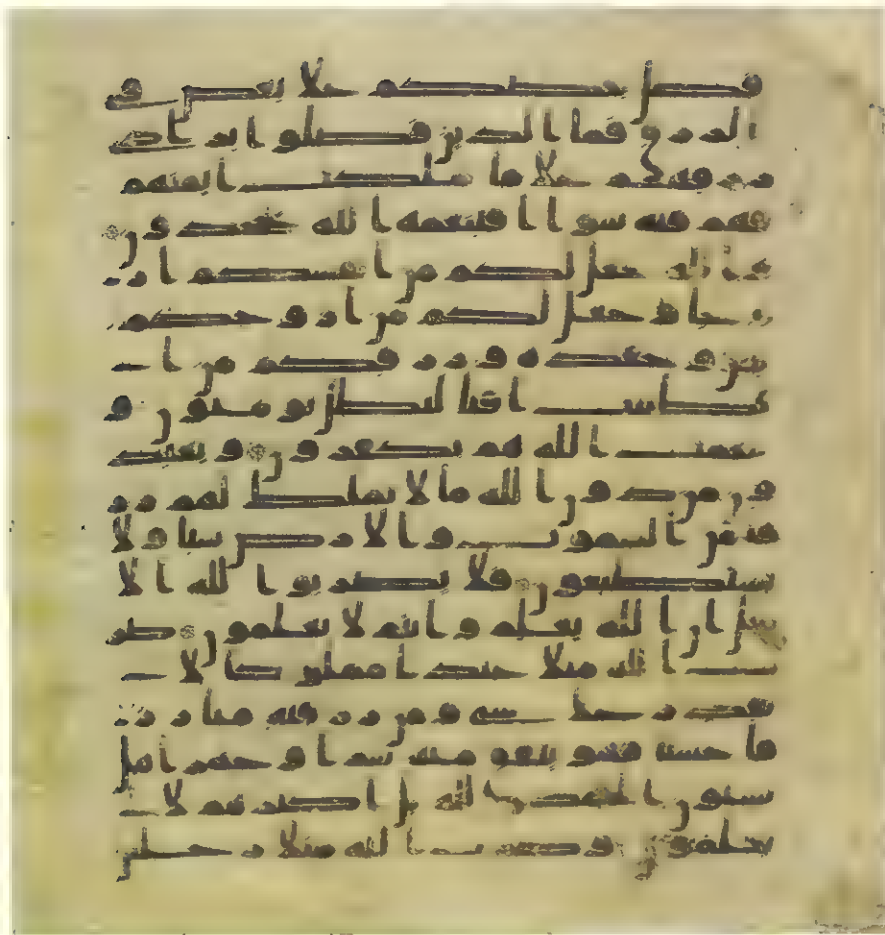 فضل بعضكم علا بعض في
الرزق فما الذين فضلوا برادي
رزقهم علا ما ملكت ايمنهم
فهم فيه سوا افبنعمه الله يجحدون
والله جعل لكم من انفسكم ازو
جا وجعل لكم من ازوجكم
بنين وحفده ورزقكم من ا
لطيبت افبالبطل يومنون و
بنعمت الله هم يكفرون ويعبد
ون من دون الله ما لا يملك لهم رز
قا من السموت والارض شيا ولا
يستطيعون فلا تضربوا لله الا
مثل ان الله يعلم وانتم لا تعلمون ضر
ب الله مثلا عبدا مملوكا لا
يقدر علا شي ومن رزقنه منا رز
قا حسنا فهو ينفق منه سرا وجهرا هل
يستون الحمد لله بل اكثرهم لا
يعلمون وضرب الله مثلا رجلين